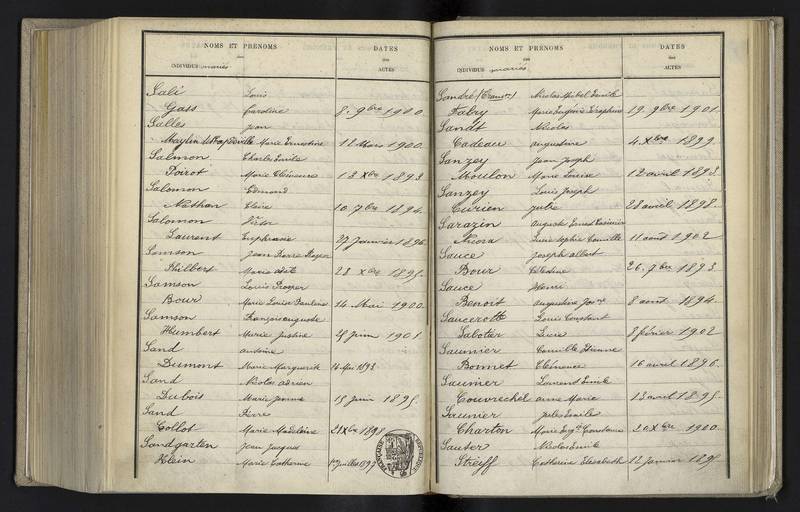 NOMS ET PRÉNOMS
des
INDIVIDUS mariés
DATES
des
ACTES
Sali Louis
Gass Caroline 8. 9bre 1900.
Salles Jean
Maylin Marie Ernestine 12 Mars 1900.
Salmon Charles Emile
Poirot Marie Clémence 13 Xbre 1893
Salomon Edmond
Nathan Claire 10. 7bre 1894.
Salomon Victor
Laurent Euphrasie 27 Janvier 1896
Samson Jean Pierre
Philbert Marie 23 Xbre 1895.
Samson Louis Prosper
Bour Marie Louise Pauline 14 Mai 1900.
Samson François auguste
Humbert Marie Justine Juin 1901.
Sand antoine
Dumont Marie Marguerite 16 Mai 1893
Sand Nicolas adrien
Dubois Marie Jeanne 15 Juin 1895.
Sand Pierre
Collot Marie Madeleine 21 Xbre 1898
Sandgarten Jean Jacques
Klein Marie Catherine 1er Juillet 1897
NOMS ET PRÉNOMS
des
INDIVIDUS mariés
DATES
des
ACTES
Sandré Nicolas Emile
Fabry Marie Eugénie Séraphine 19. 9bre 1901.
Sandt Nicolas
Cadeau augustine 4 Xbre 1899.
Sanzey Jean Joseph
Moulon Marie Louise 12 avril 1893.
Sanzey Louis Joseph
Curien Julie 28 avril 1898.
Sarazin auguste Ernest Casimir
Lucie Sophie Camille 11 août 1902
Sauce Joseph albert
Bour Célestine 26. 7bre 1893.
Sauce Henri
Benoit augustine 8 août 1894.
Saucerotte Louis Constant
Sabotier Lucie 8 février 1902
Saunier Camille Etienne
Bonnet Clémence 16 avril 1896.
Saunier Laurent Emile
Couvrechel anne Marie 13 avril 1895.
Saunier Jules Emile
Charton Marie Constance 20 Xbre 1900.
Sauter Nicolas Emile
Streiff Catherine Elisabeth 12 Janvier 1895.